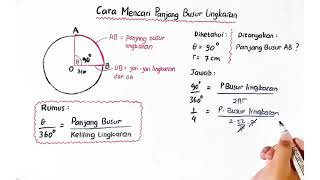 Cara Mencari Panjang Busur Lingkaran
A
B
O
θ
90°
7cm
AB = Panjang busur
lingkaran
OB = jari-jari lingkaran
dan OA
Rumus:
θ
360°
=
Panjang Busur
Keliling Lingkaran
Diketahui:
θ = 90°
r = 7 cm
Ditanyakan:
Panjang Busur AB ?
Jawab:
90°
360°
=
P Busur lingkaran
2πr
1
4
=
P. Busur lingkaran
2.22